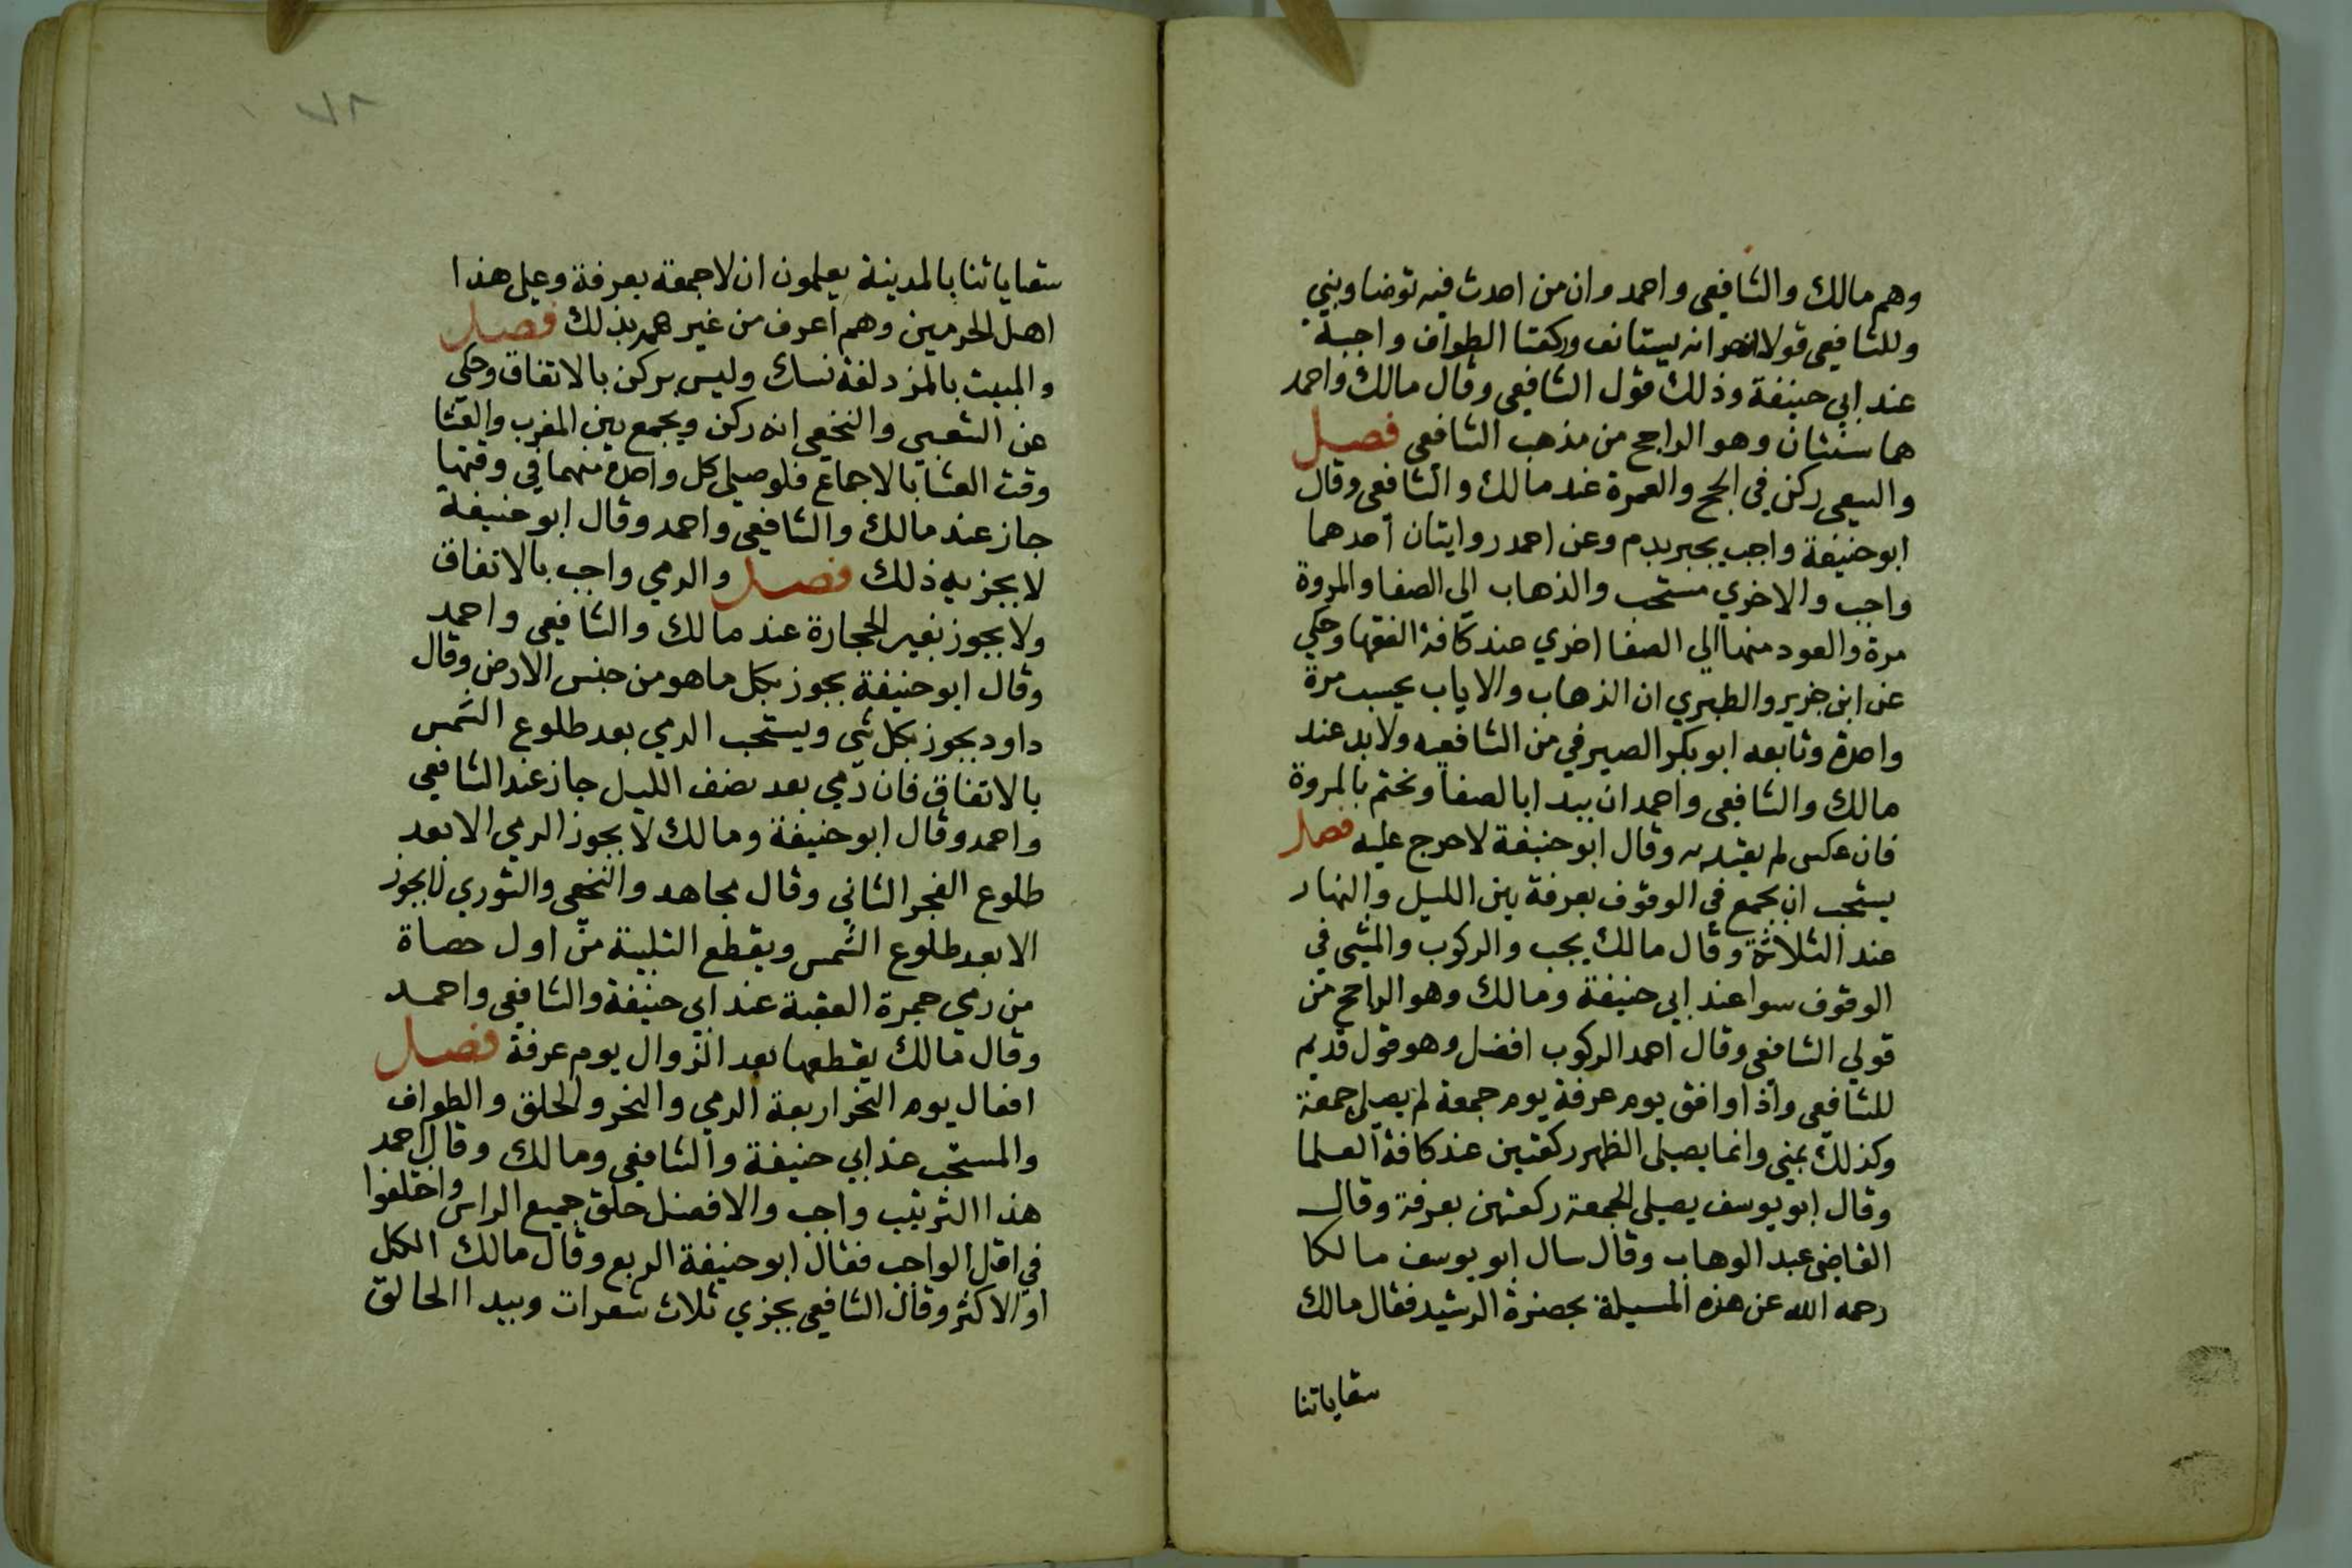 وهم مالك والشافعي واحمد وان من احدث فيه توضا وبني
وللشافعي قول انه يستانف وركعتا الطواف واجبة
عند ابي حنيفة وذلك قول الشافعي وقال مالك واحمد
هما سنتان وهو الراجح من مذهب الشافعي فصل
والسعي ركن في الحج والعمرة عند مالك والشافعي وقال
ابو حنيفة واجب يجبر بدم وعن احمد روايتان احدهما
واجب والاخري مستحب والذهاب الي الصفا والمروة
مرة والعود منها الي الصفا اخري عند كافة الفقها وحكي
عن ابن خرير والطبري ان الذهاب والاياب يحسب مرة
واحدة وتابعه ابو بكر الصيرفي من الشافعيه ولا بد عند
مالك والشافعي واحمد ان يبدا بالصفا ونختم بالمروة
فان عكس لم يعتد به وقال ابو حنيفة لا حرج عليه فصل
يستحب ان يجمع في الوقوف بعرفة بين الليل والنهار
عند الثلاثة وقال مالك يجب والركوب والمشي في
الوقوف سوا عند ابي حنيفة ومالك وهو الراجح من
قولي الشافعي وقال احمد الركوب افضل وهو قول قديم
للشافعي واذا وافق يوم عرفة يوم جمعة لم يصل جمعة
وكذلك بمني وانما يصلي الظهر ركعتين عند كافة العلما
وقال ابو يوسف يصلي الجمعة ركعتين بعرفة وقال
القاضي عبد الوهاب وقال سال ابو يوسف مالكا
رحمه الله عن هذه المسيلة بحضرة الرشيد فقال مالك
سقاياتنا
٧٨
سقاياتنا بالمدينة يعلمون ان لا جمعة بعرفة وعلي هذا
اهل الحرمين وهم اعرف من غيرهم بذلك فصل
والمبيت بالمزدلفة نسك وليس بركن بالاتفاق وحكي
عن الشعبي والنخعي انه ركن ويجمع بين المغرب والعشا
وقت العشا بالاجماع فلو صلي كل واحدة منهما في وقتها
جاز عند مالك والشافعي واحمد وقال ابو حنيفة
لا يجزيه ذلك فصل والرمي واجب بالاتفاق
ولا يجوز بغير الحجارة عند مالك والشافعي واحمد
وقال ابو حنيفة يجوز بكل ما هو من جنس الارض وقال
داود يجوز بكل شي ويستحب الرمي بعد طلوع الشمس
بالاتفاق فان رمي بعد نصف الليل جاز عند الشافعي
واحمد وقال ابو حنيفة ومالك لا يجوز الرمي الا بعد
طلوع الفجر الثاني وقال مجاهد والنخعي والثوري لا يجوز
الا بعد طلوع الشمس ويقطع التلبية من اول حصاة
من رمي جمرة العقبة عند ابي حنيفة والشافعي واحمد
وقال مالك يقطعها بعد الزوال يوم عرفة فصل
افعال يوم النحر اربعة الرمي والنحر والحلق والطواف
والمستحب عند ابي حنيفة والشافعي ومالك وقال احمد
هذا الترتيب واجب والافضل حلق جميع الراس واختلفوا
في اقل الواجب فقال ابو حنيفة الربع وقال مالك الكل
او الاكثر وقال الشافعي يجزي ثلاث شعرات ويبدا الحالق